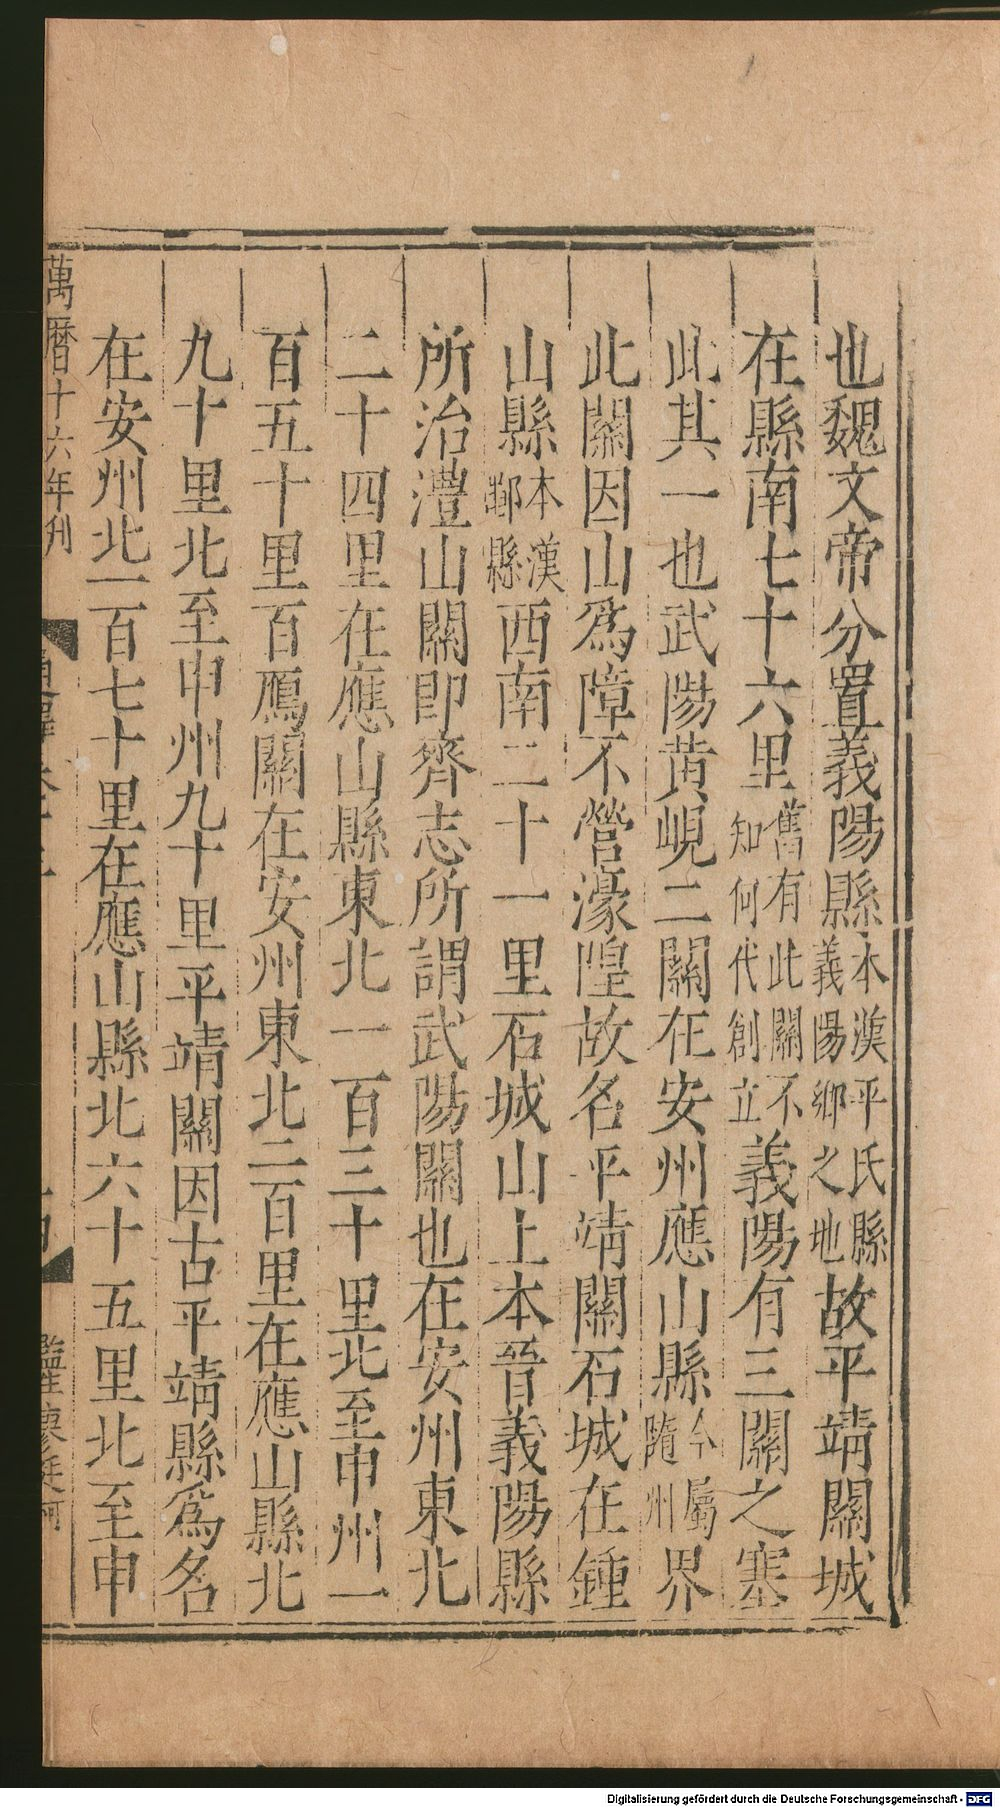 也魏文帝分置義陽縣本漢平氏縣義陽鄉之地故平靖關城
在縣南七十六里舊有此關不知何代創立義陽有三關之塞
此其一也武陽黄峴二關在安州應山縣今屬隋州界
此關因山爲障不營濠隍故名平靖關石城在鍾
山縣本漢鄳縣西南二十一里石城山上本晉義陽縣
所治澧山關即齊志所謂武陽關也在安州東北
二十四里在應山縣東北一百三十里北至申州一
百五十里百鴈關在安州東北二百里在應山縣北
九十里北至申州九十里平靖關因古平靖縣爲名
在安州北一百七十里在應山縣北六十五里北至申
萬曆十六年刋
監生廖廷
Digitalisierung gefördert durch die Deutsche Forschungsgemeinschaft - DFG